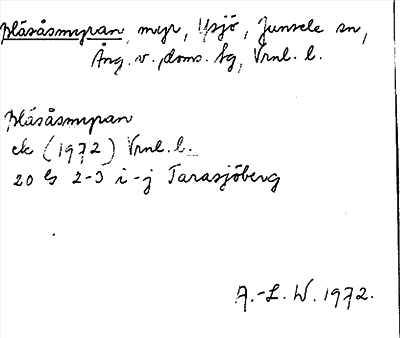 Blåsåsmyran, myr, Ysjö, Junsele sn,
Ång. v. doms. sg, Vrnl. l.
Blåsåsmyran
ek (1972) Vrnl. l.
20 G 2-3 i-j Tarasjöberg
A.-L. W. 1972.